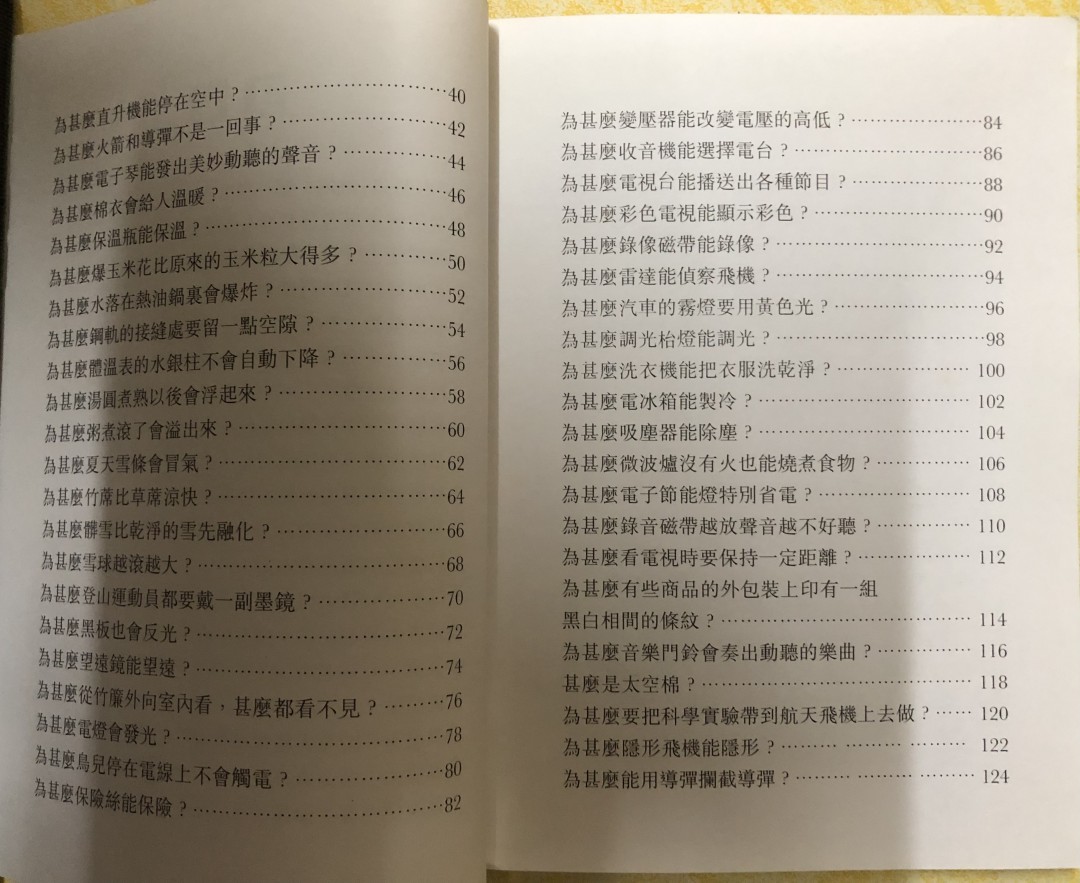 為甚麼直升機能停在空中？……………………………40
為甚麼火箭和導彈不是一回事？………………………42
為甚麼電子琴能發出美妙動聽的聲音？………………44
為甚麼棉衣會給人溫暖？………………………………46
為甚麼保溫瓶能保溫？…………………………………48
為甚麼爆玉米花比原來的玉米粒大得多？……………50
為甚麼水落在熱油鍋裏會爆炸？………………………52
為甚麼鋼軌的接縫處要留一點空隙？…………………54
為甚麼體溫表的水銀柱不會自動下降？………………56
為甚麼湯圓煮熟以後會浮起來？………………………58
為甚麼粥煮滾了會溢出來？……………………………60
為甚麼夏天雪條會冒氣？………………………………62
為甚麼竹蓆比草蓆涼快？………………………………64
為甚麼髒雪比乾淨的雪先融化？………………………66
為甚麼雪球越滾越大？…………………………………68
為甚麼登山運動員都要戴一副墨鏡？…………………70
為甚麼黑板也會反光？…………………………………72
為甚麼望遠鏡能望遠？…………………………………74
為甚麼從竹簾外向室內看，甚麼都看不見？………76
為甚麼電燈會發光？……………………………………78
為甚麼鳥兒停在電線上不會觸電？……………………80
為甚麼保險絲能保險？…………………………………82
為甚麼變壓器能改變電壓的高低？…………………84
為甚麼收音機能選擇電台？…………………………86
為甚麼電視台能播送出各種節目？…………………88
為甚麼彩色電視能顯示彩色？………………………90
為甚麼錄像磁帶能錄像？……………………………92
為甚麼雷達能偵察飛機？……………………………94
為甚麼汽車的霧燈要用黃色光？……………………96
為甚麼調光枱燈能調光？……………………………98
為甚麼洗衣機能把衣服洗乾淨？…………………100
為甚麼電冰箱能製冷？……………………………102
為甚麼吸塵器能除塵？……………………………104
為甚麼微波爐沒有火也能燒煮食物？……………106
為甚麼電子節能燈特別省電？……………………108
為甚麼錄音磁帶越放聲音越不好聽？……………110
為甚麼看電視時要保持一定距離？………………112
為甚麼有些商品的外包裝上印有一組
黑白相間的條紋？…………………………………114
為甚麼音樂門鈴會奏出動聽的樂曲？……………116
甚麼是太空棉？……………………………………118
為甚麼要把科學實驗帶到航天飛機上去做？……120
為甚麼隱形飛機能隱形？……… ……… ………122
為甚麼能用導彈攔截導彈？……………… ………124